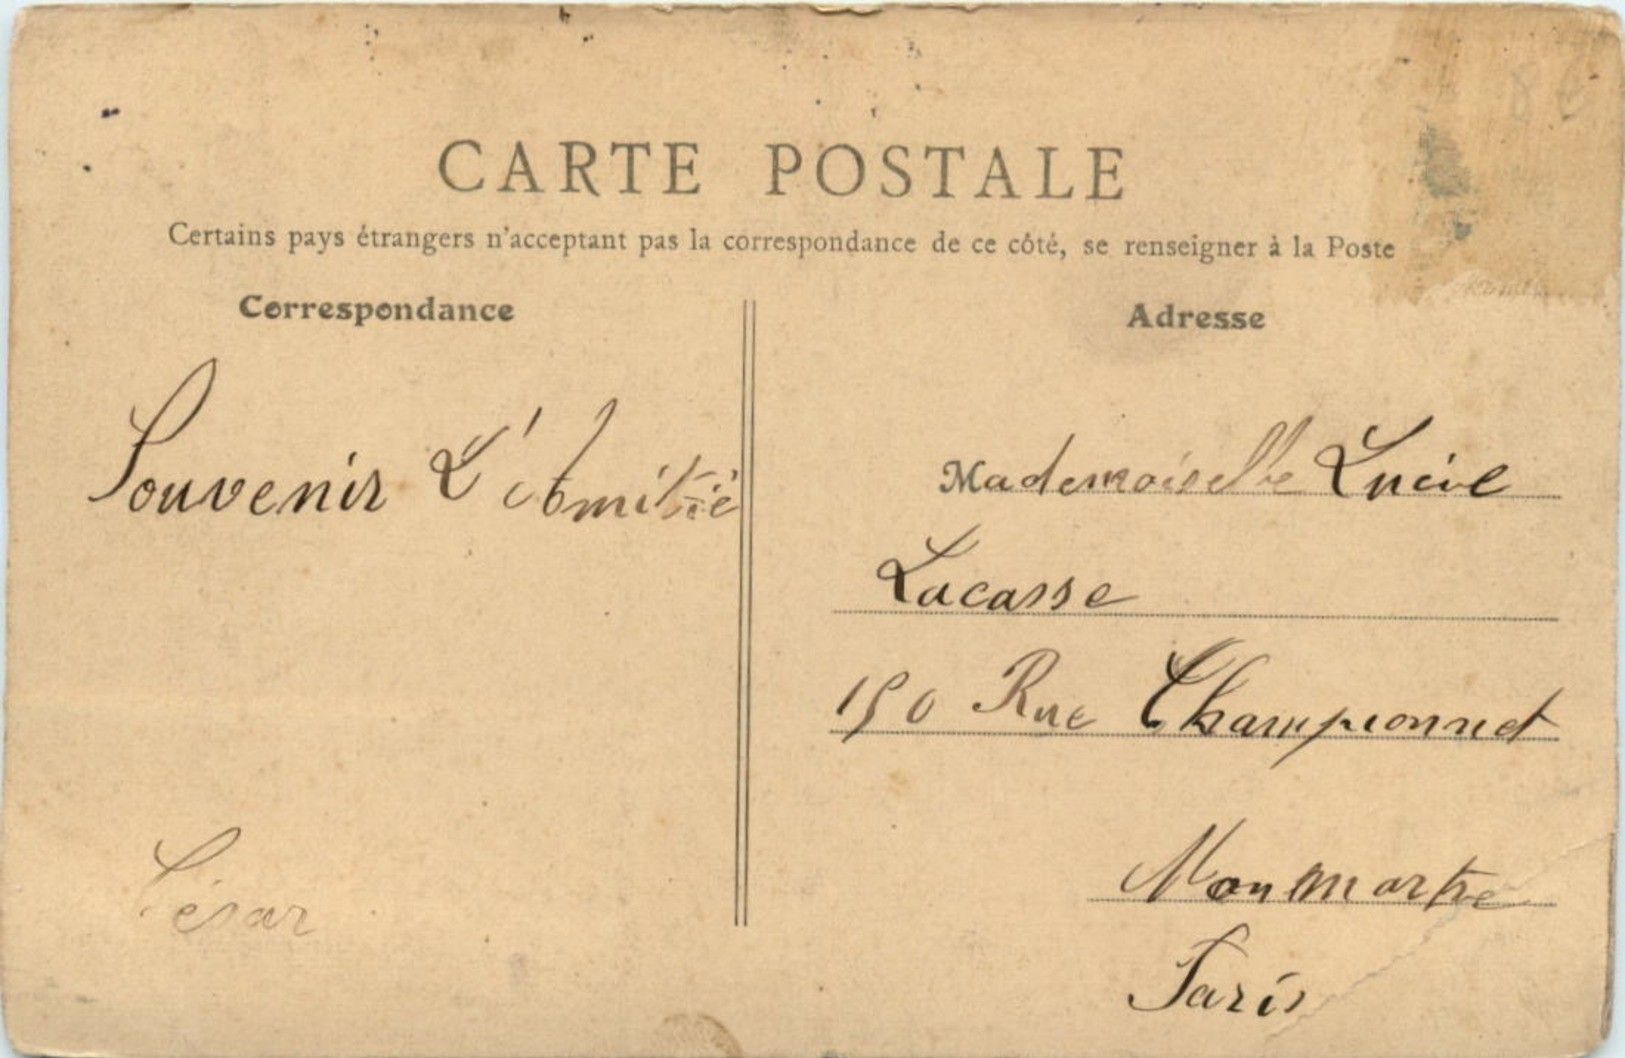 CARTE POSTALE
Certains pays étrangers n'acceptant pas la correspondance de ce côté, se renseigner à la Poste
Correspondance
Souvenir L'Amitié
César
Adresse
Mademoiselle Lucie
Lacasse
150 Rue Championnet
Monmartre
Paris